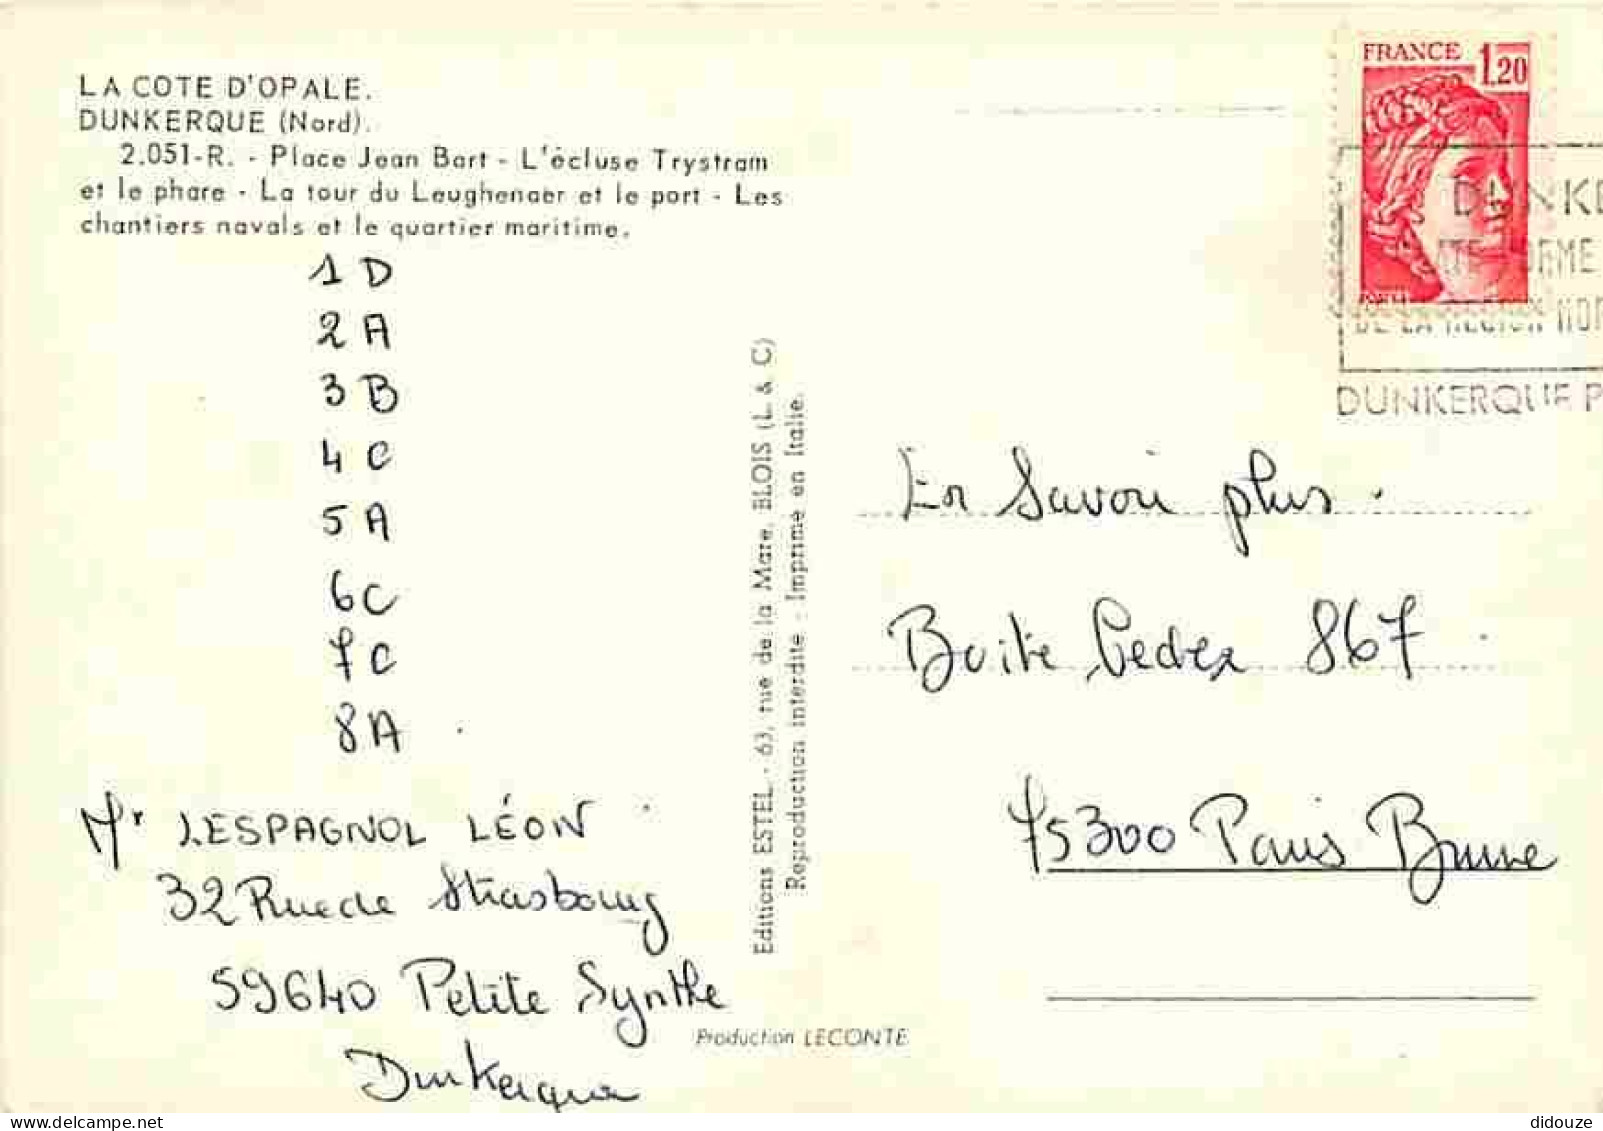 LA COTE D'OPALE.
DUNKERQUE (Nord).
2.051-R. - Place Jean Bart - L'écluse Trystram
et le phare - La tour du Leughenaer et le port - Les
chantiers navals et le quartier maritime.
1 D
2 A
3 B
4 C
5 A
6 C
7 C
8 A
Mr LESPAGNOL LÉON
32 Rue de Strasbourg
59640 Petite Synthe
Dunkerque
Editions ESTEL - 63, rue de la Mare, BLOIS (L & C)
Reproduction interdite - Imprimé en Italie.
Production LECONTE
FRANCE 1,20
DUNKE
DE LA REGION NOR
DUNKERQUE P
En Savoir plus.
Boite Cedex 867
75300 Paris Brune
didouze